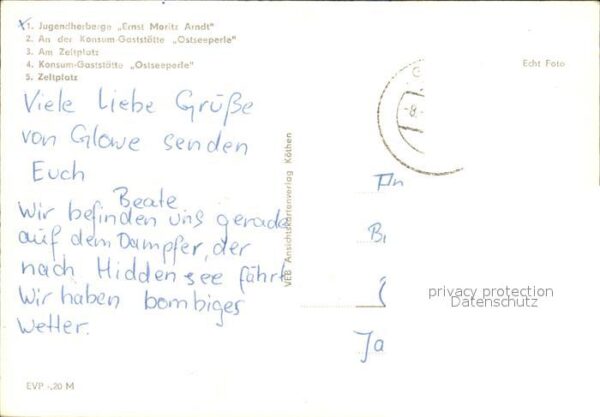 x1. Jugendherberge „Ernst Moritz Arndt"
2. An der Konsum-Gaststätte „Ostseeperle"
3. Am Zeltplatz
4. Konsum-Gaststätte „Ostseeperle"
5. Zeltplatz
Echt Foto
Viele Liebe Grüße
von Glowe senden
Euch
Beate
Wir befinden uns gerade
auf dem Dampfer, der
nach Hiddensee fährt
Wir haben bombiges
Wetter.
VEB Ansichtskartenverlag Köthen
G
-8.
An
B
Ja
privacy protection
Datenschutz
EVP -,20 M